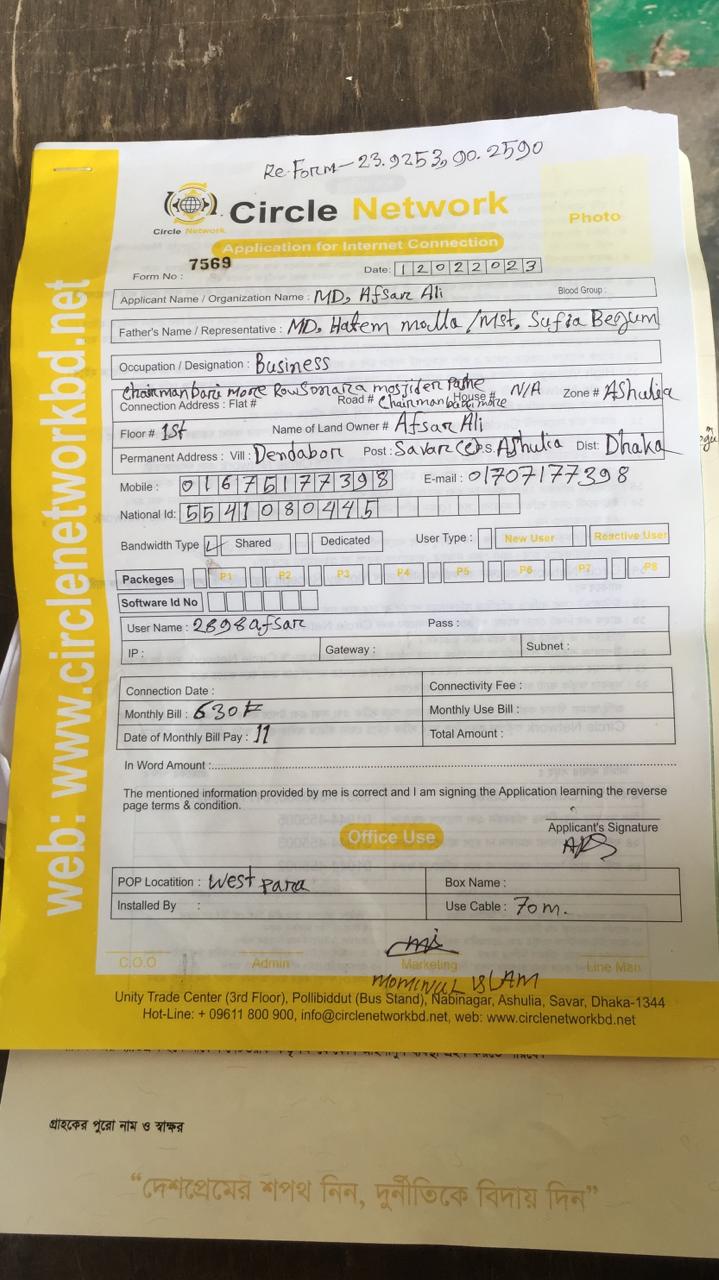 Re-Form-23.9253, 90.2590
Circle Network
Circle Network
Photo
Application for Internet Connection
Form No : 7569
Date: 12022023
Applicant Name / Organization Name : MD, Afsar Ali Blood Group :
Father's Name / Representative : MD, Hatem molla /Mst, Sufia Begum
Occupation / Designation : Business
Chairmanbari more mosjider Pashe
Connection Address : Flat # Road # Chairman bari more House # N/A Zone # AShulia
Floor # 1st Name of Land Owner # Afsar Ali
Permanent Address : Vill : Dendabor Post : Savar P.S. AShulia Dist: Dhaka
Mobile : 01675177398 E-mail : 01707177398
National Id: 5541080445
Bandwidth Type Shared Dedicated User Type : New User Reactive User
Packeges P1 P2 P3 P4 P5 P6 P7 P8
Software Id No
User Name : 2898afsar Pass :
IP : Gateway : Subnet :
Connection Date : Connectivity Fee :
Monthly Bill : 630 Monthly Use Bill :
Date of Monthly Bill Pay : 11 Total Amount :
In Word Amount :
The mentioned information provided by me is correct and I am signing the Application learning the reverse
page terms & condition.
Applicant's Signature
Office Use
POP Locatition : West para Box Name :
Installed By : Use Cable : 70 m.
C.O.O Admin Marketing Line Man
MOMINUL ISLAM
Unity Trade Center (3rd Floor), Pollibiddut (Bus Stand), Nabinagar, Ashulia, Savar, Dhaka-1344
Hot-Line: + 09611 800 900, info@circlenetworkbd.net, web: www.circlenetworkbd.net
web: www.circlenetworkbd.net
গ্রাহকের পুরো নাম ও স্বাক্ষর
“দেশপ্রেমের শপথ নিন, দুর্নীতিকে বিদায় দিন”